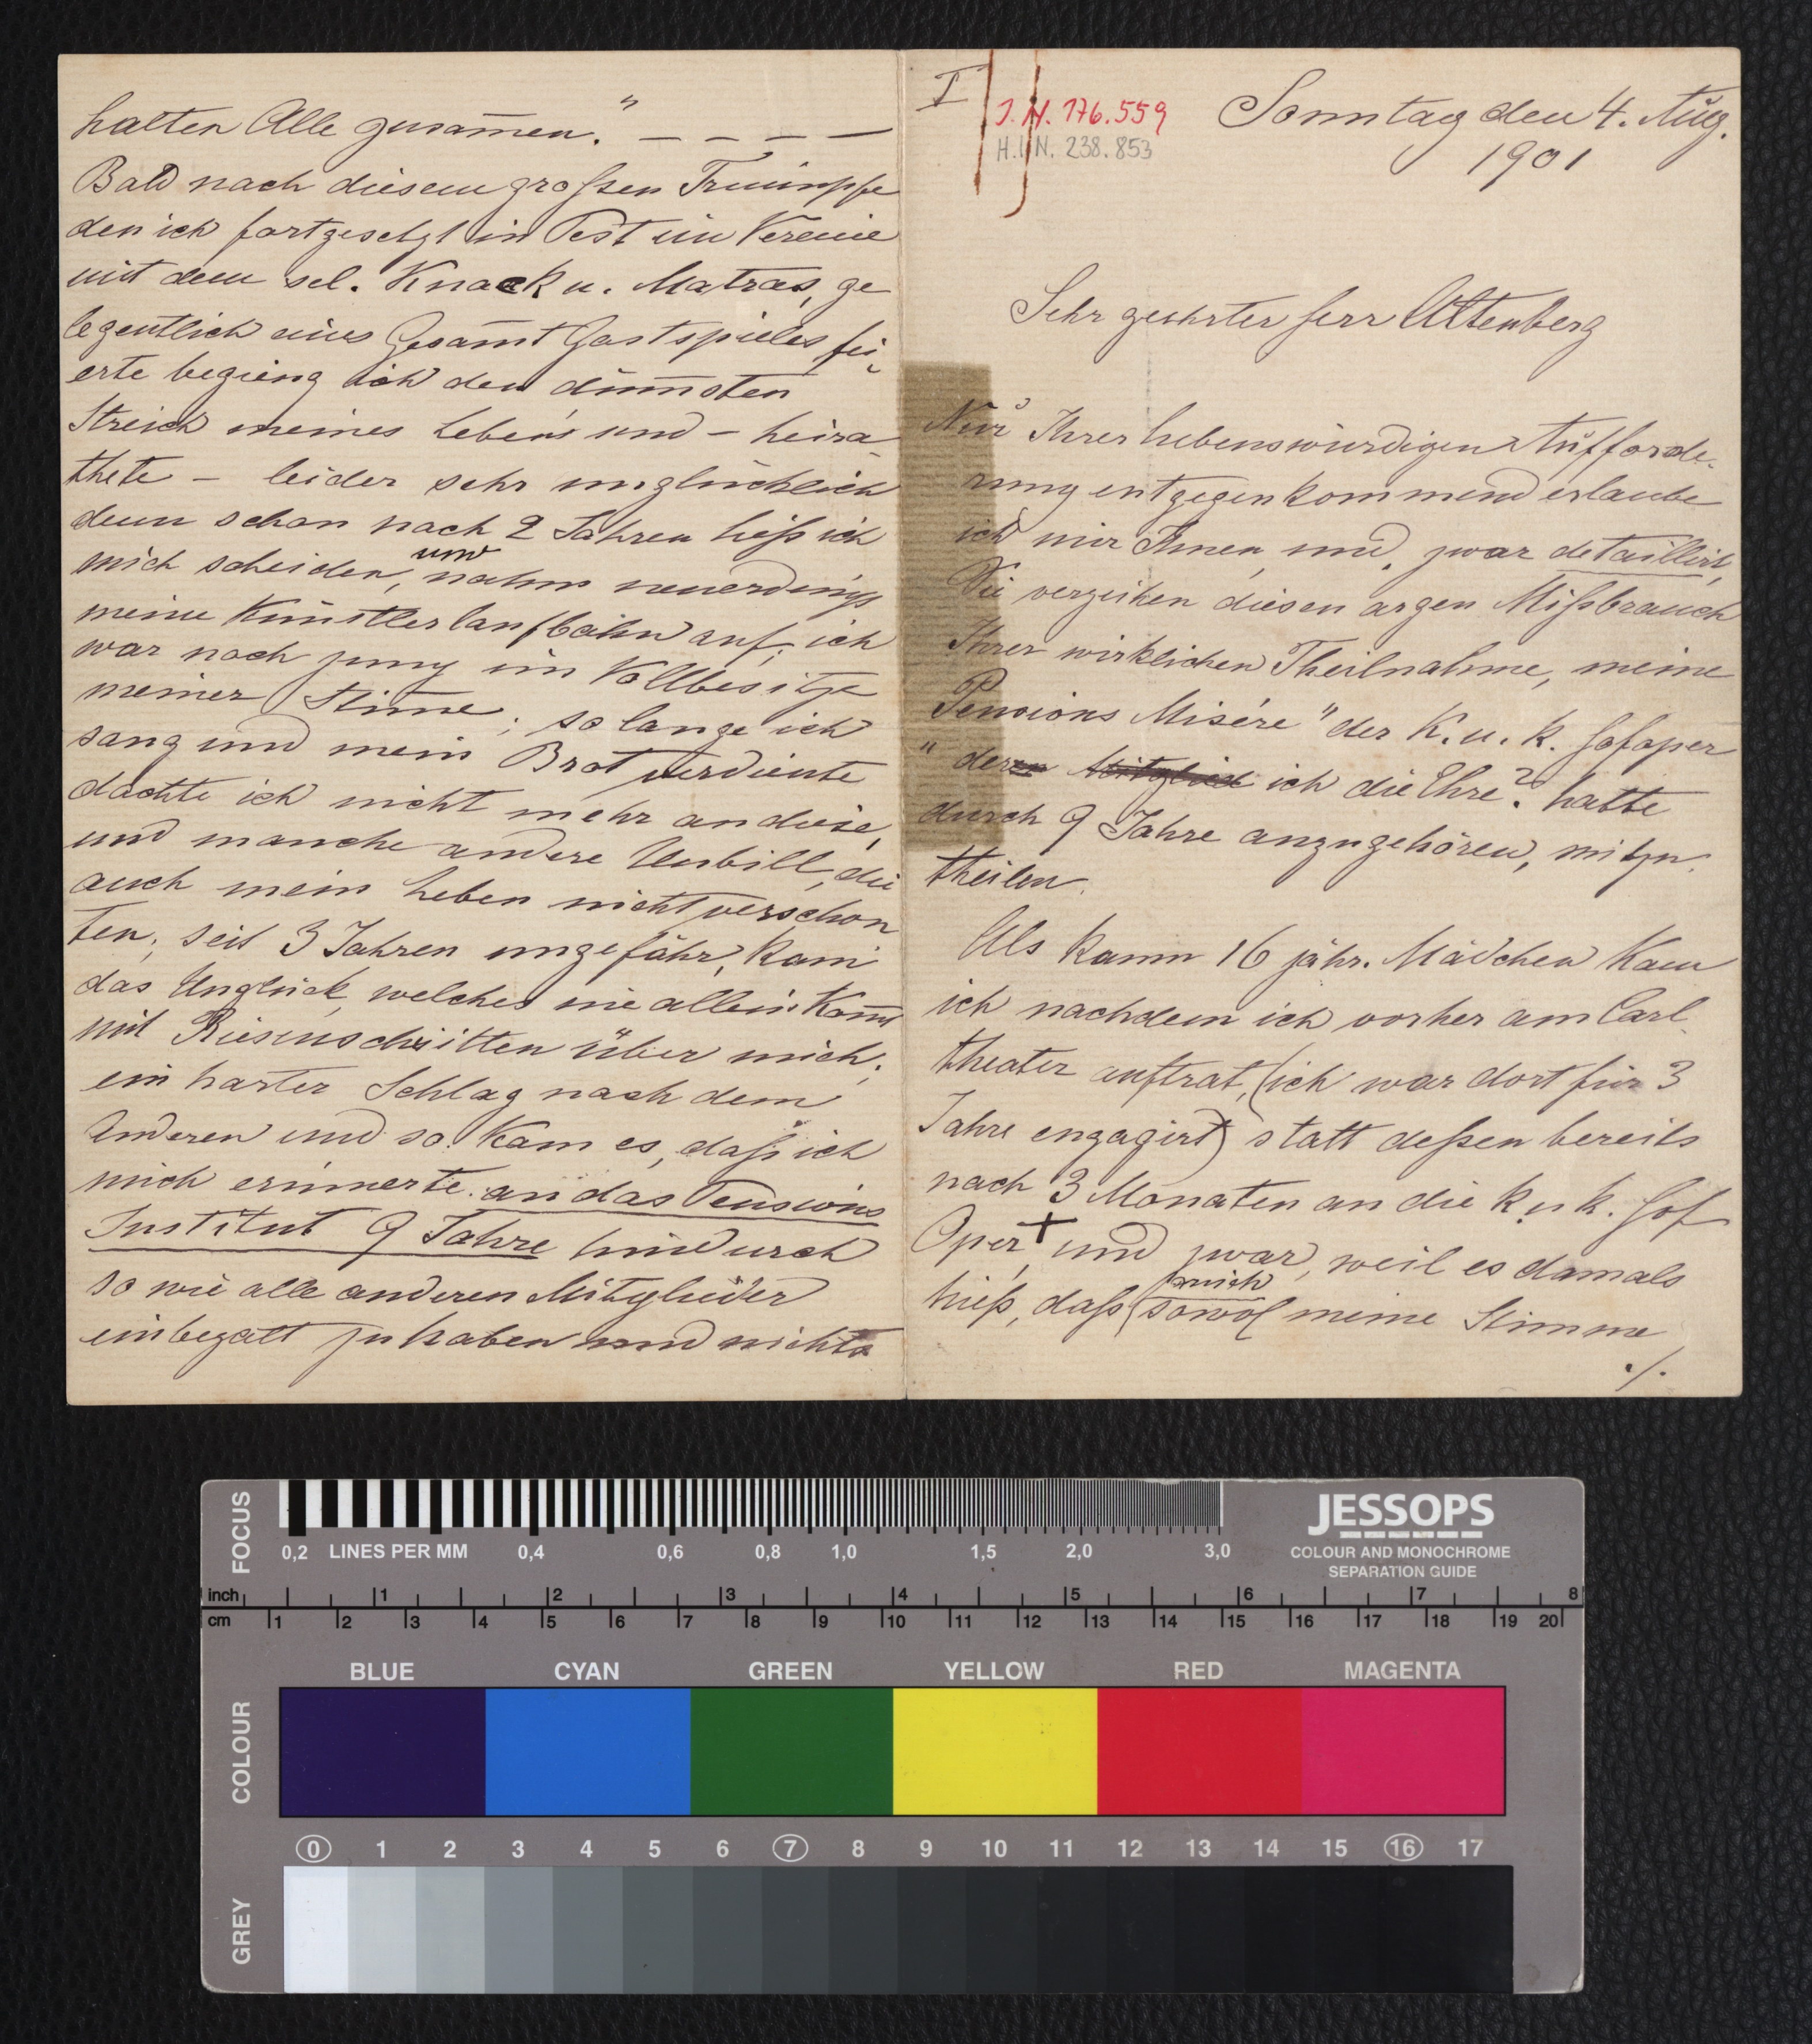 I
J.N. 176.559
H.I.N. 238.853
Sonntag den 4. Aug.
1901
Sehr geehrter Herr Altenberg
Nur Ihrer liebenswürdigen Aufforde-
rung entgegenkommend erlaube
ich mir Ihnen, und, zwar detaillirt,
Sie verzeihen diesen argen Mißbrauch
Ihrer wirklichen Theilnahme, meine
Pensions Misére" der K. u. k. Hofoper
"deren Mitglied ich die Ehre? hatte
durch 9 Jahre anzugehören, mitzu-
theilen.
Als kaum 16 jähr. Mädchen kam
ich nachdem ich vorher am Carl-
theater auftrat, (ich war dort für 3
Jahre engagirt) statt deßen bereits
nach 3 Monaten an die k. u k. Hof
Oper + und zwar, weil es damals
mich
hieß, daß sowol meine Stimme
./.
halten Alle zusam̄en." — — — —
Bald nach diesem großen Triumpfe
den ich fortgesetzt in Pest im Vereine
mit dem sel. Knaack u. Matras, ge
legentlich eines Gesam̄t Gastspieles fei-
erte begieng ich den düm̄sten
Streich meines Lebens und – heira-
thete – leider sehr unglücklich
denn schon nach 2 Jahren ließ ich
und
mich scheiden, nahm neuerdings
meine Künstlerlaufbahn auf; ich
war noch jung im Vollbesitze
meiner Stim̄e; so lange ich
sang und mein Brot verdiente
dachte ich nicht mehr an diese,
und manche andere Unbill, die
auch mein Leben nicht verschon
ten; seit 3 Jahren ungefähr, kam
das Unglück, welches nie allein kom̄t
mit Riesenschritten über mich;
ein harter Schlag nach dem
Anderen und so kam es, daß ich
mich erinnerte an das Pensions
Institut 9 Jahre hindurch
so wie alle anderen Mitglieder
einbezalt zu haben und nichts
FOCUS
0,2 LINES PER MM 0,4 0,6 0,8 1,0 1,5 2,0 3,0
JESSOPS
COLOUR AND MONOCHROME
SEPARATION GUIDE
inch 1 2 3 4 5 6 7 8
cm 1 2 3 4 5 6 7 8 9 10 11 12 13 14 15 16 17 18 19 20
COLOUR
BLUE CYAN GREEN YELLOW RED MAGENTA
0 1 2 3 4 5 6 7 8 9 10 11 12 13 14 15 16 17
GREY